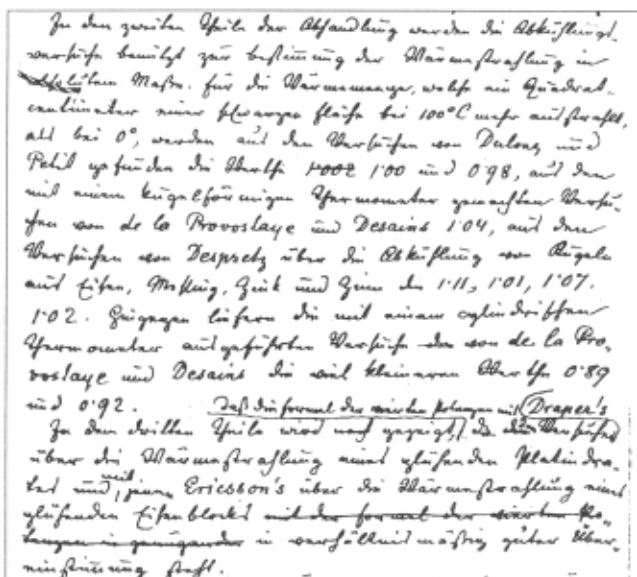 In dem zweiten Theile der Abhandlung werden die Abkühlungs-
versuche benützt zur Bestimmung der Wärmestrahlung in
absolutem Maße. Für die Wärmemenge, welche ein Quadrat-
centimeter einer schwarzen Fläche bei 100°C mehr ausstrahlt,
als bei 0°, werden aus den Versuchen von Dulong und
Petit gefunden die Werthe 1·00 und 0·98, aus den
mit einem kugelförmigen Thermometer gemachten Versu-
chen von de la Provostaye und Desains 1·04, aus den
Versuchen von Despretz über die Abkühlung von Kugeln
aus Eisen, Messing, Zink und Zinn die 1·11, 1·01, 1·07,
1·02. Hingegen liefern die mit einem cylindrischen
Thermometer ausgeführten Versuche von de la Pro-
vostaye und Desains die viel kleineren Werthe 0·89
und 0·92. daß die Formel der vierten Potenzen mit Draper's
In dem dritten Theile wird noch gezeigt, Versuchen
über die Wärmestrahlung eines glühenden Platindra-
tes und mit jenen Ericsson's über die Wärmestrahlung eines
glühenden Eisenblocks mit der Formel der vierten Po-
tenzen in genügender in verhältnismäßig guter Über-
einstimmung steht.